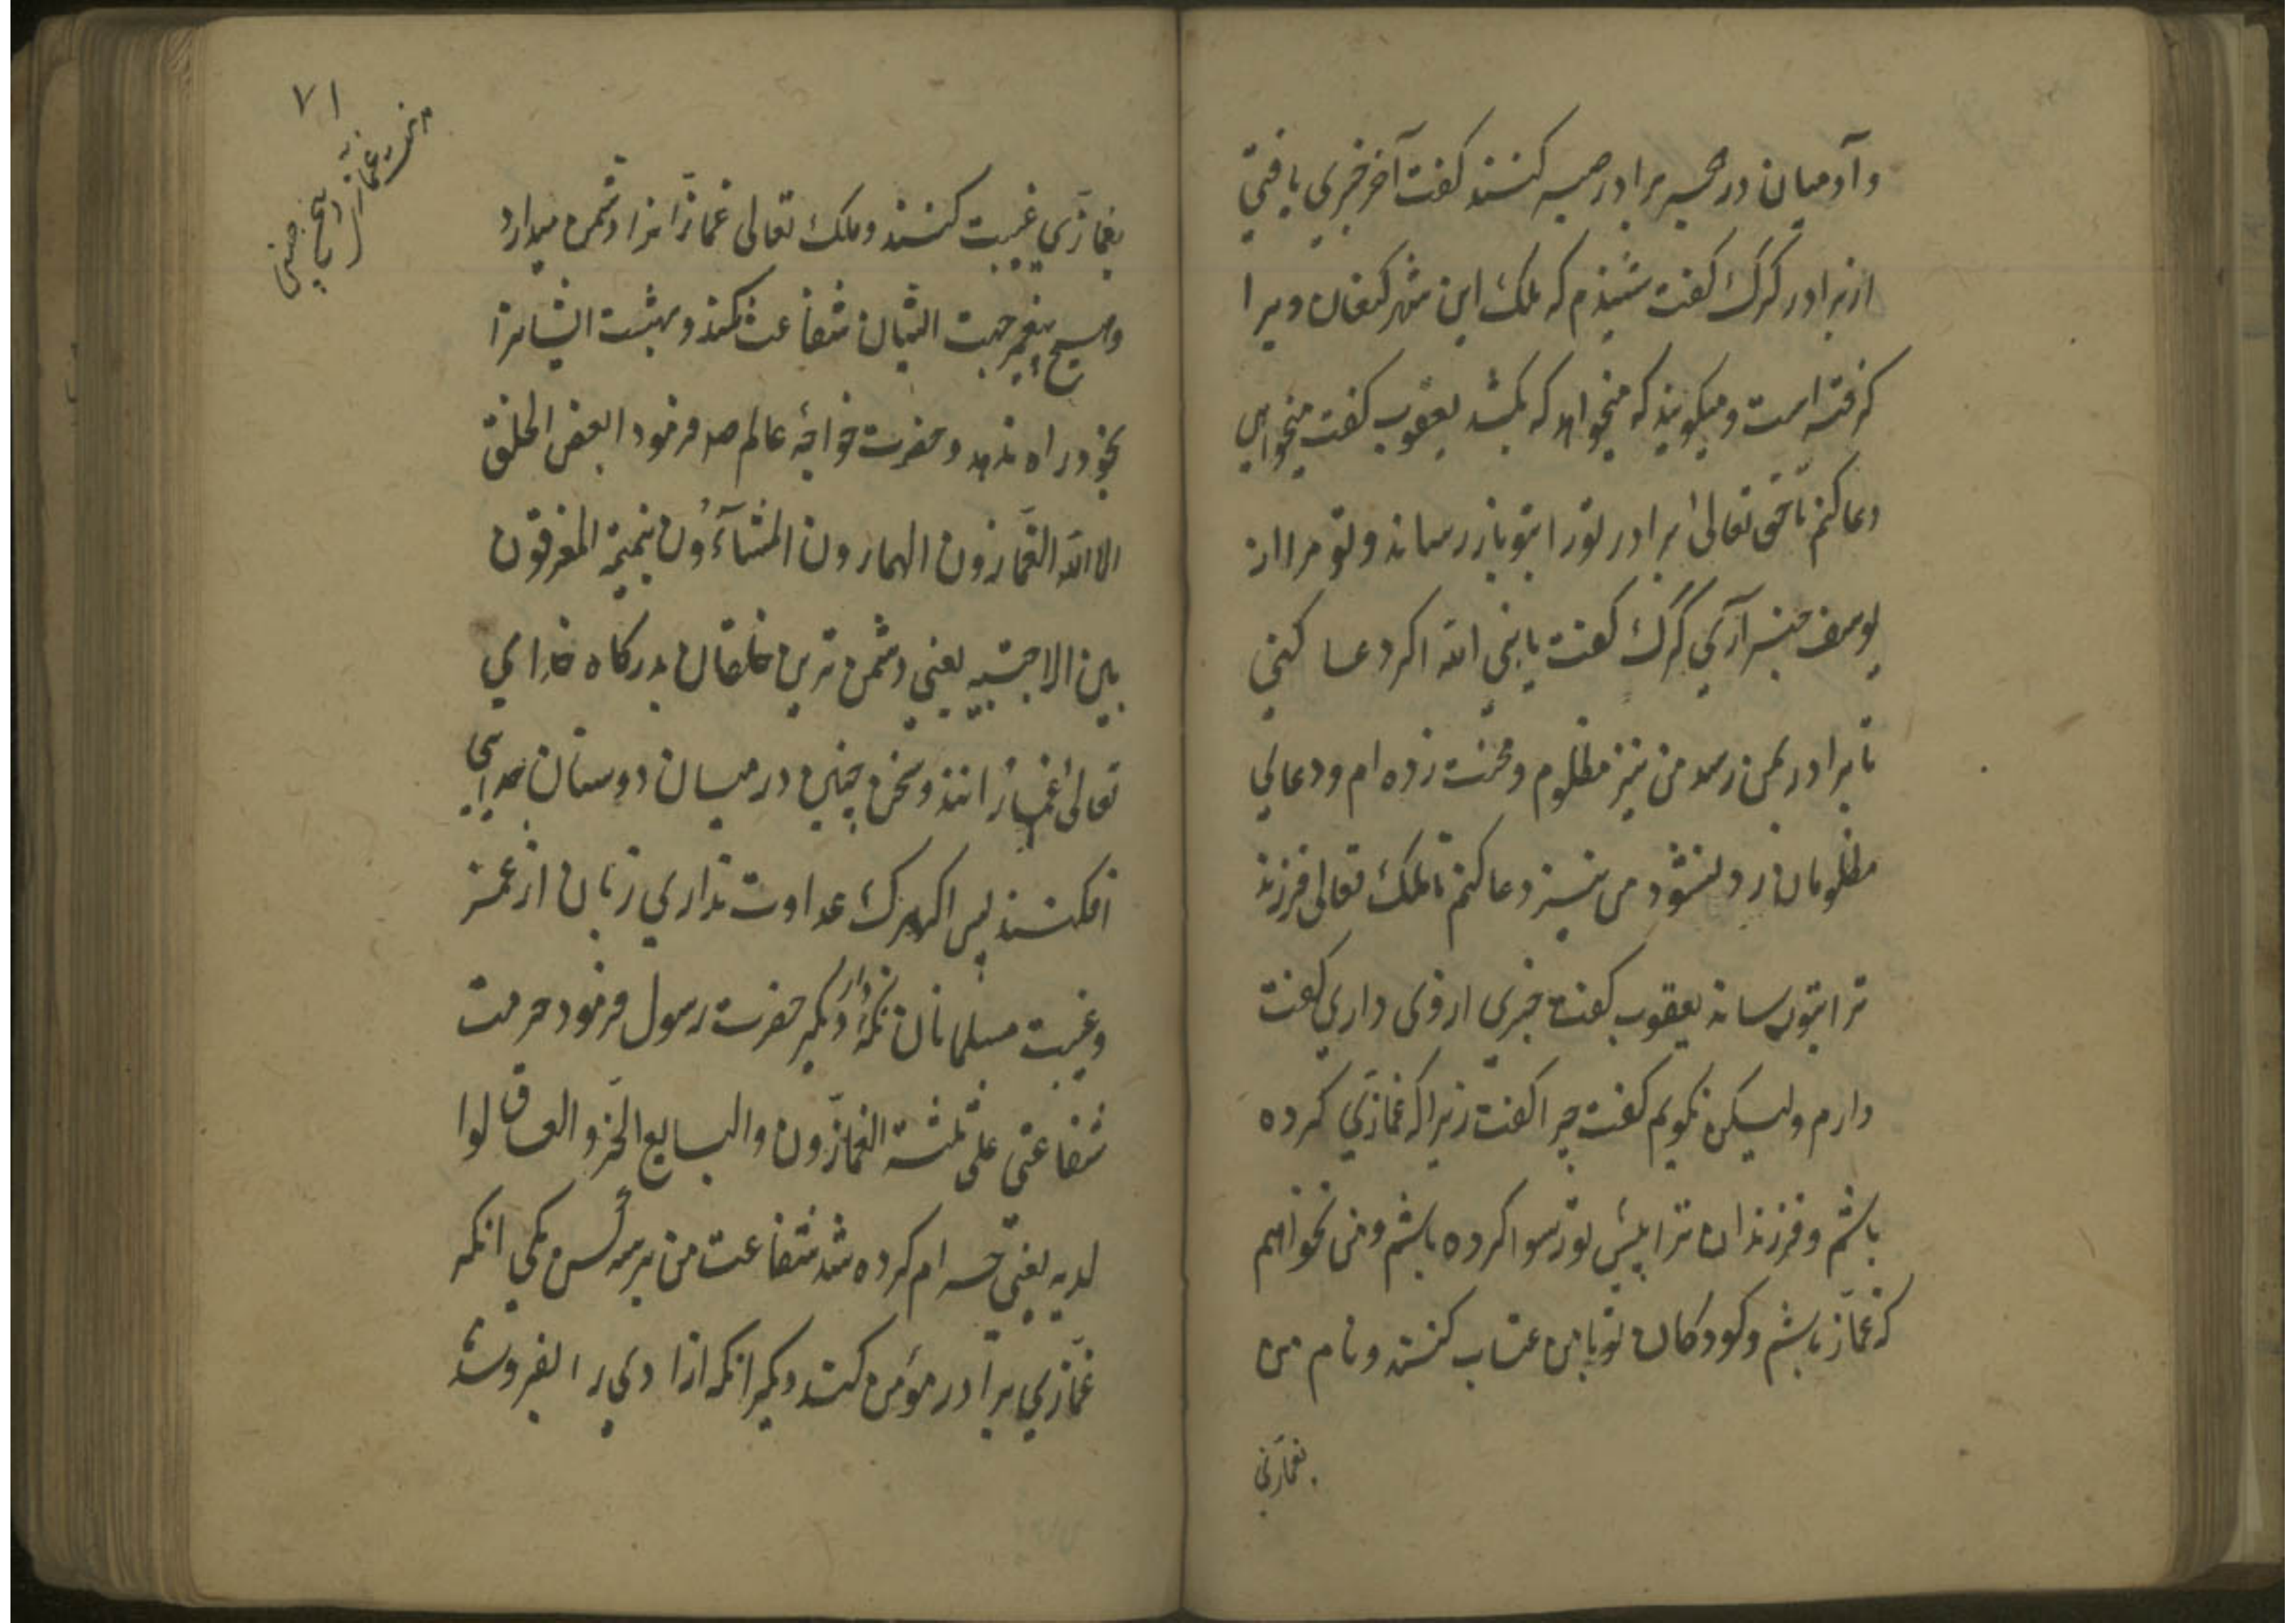 وآدمیان در همه برادر همه کنند کفت آخر خبری یافتی
از برادر کرک کفت شنیدم که ملک این شهر کنعان ویرا
کرفته است ومیکویند که میخواهد که بکشد یعقوب کفت میخواهی
دعا کنم تا حق تعالی برادر تورا بتو باز رساند وتو مرا از
یوسف خبر آری کرک کفت یا نبی الله اکر دعا کنی
تا برادر بمن رسد من نیز مظلوم ومحنت زده ام ودعای
مظلومان رد نشود من نیز دعا کنم تا ملک تعالی فرزند
ترا بتو رساند یعقوب کفت خبری ازوی داری کفت
دارم ولیکن نکویم کفت چرا کفت زیرا که غمازی کرده
باشم وفرزندان ترا پیش تو رسوا کرده باشم ومن نخواهم
که غماز باشم وکودکان تو با من عتاب کنند ونام من
بغمازی
۷۱
مذمت غمازی
بغمازی غیبت کنند وملک تعالی غمازانرا دشمن میدارد
وهیچ پیغمبر جهت ایشان شفاعت نکند وبهشت ایشانرا
بخود راه ندهد وحضرت خواجهٔ عالم صد فرمود ابغض الخلق
الی الله الغمازون الهمازون المشآؤن بنمیمة المفرقون
بین الاحبة یعنی دشمن ترین خلقان بدرکاه خدای
تعالی غمازانند وسخن چینان درمیان دوستان جدایی
افکنند پس اکر هرک عداوت نداری زبان از غمز
وغیبت مسلمانان نکه دار دیکر حضرت رسول فرمود حرمت
شفاعتی علی ثلثة الغمازون والبایع الحر والعاق لوا
لدیه یعنی حرام کرده شد شفاعت من بر سه کس یکی انکه
غمازی برادر مؤمن کند دیکر انکه ازادی را بفروشد